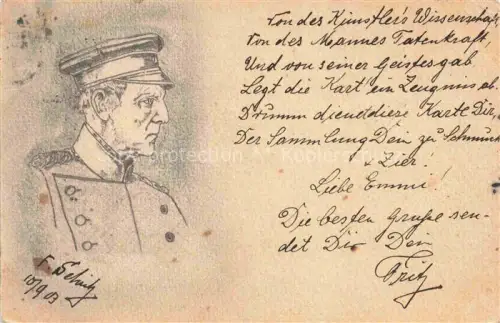 Von des Künstler's Wissenschaft,
Von des Mannes Tatenkraft,
Und von seiner Geistesgab
Legt die Kart' ein Zeugnis ab.
Drumm dienet diese Karte Dir,
Der Sammlung Dein zu Schmuck
& Zier!
Liebe Emmi!
Die besten Grüße sen-
det Dir Dein
Fritz
10/9 03